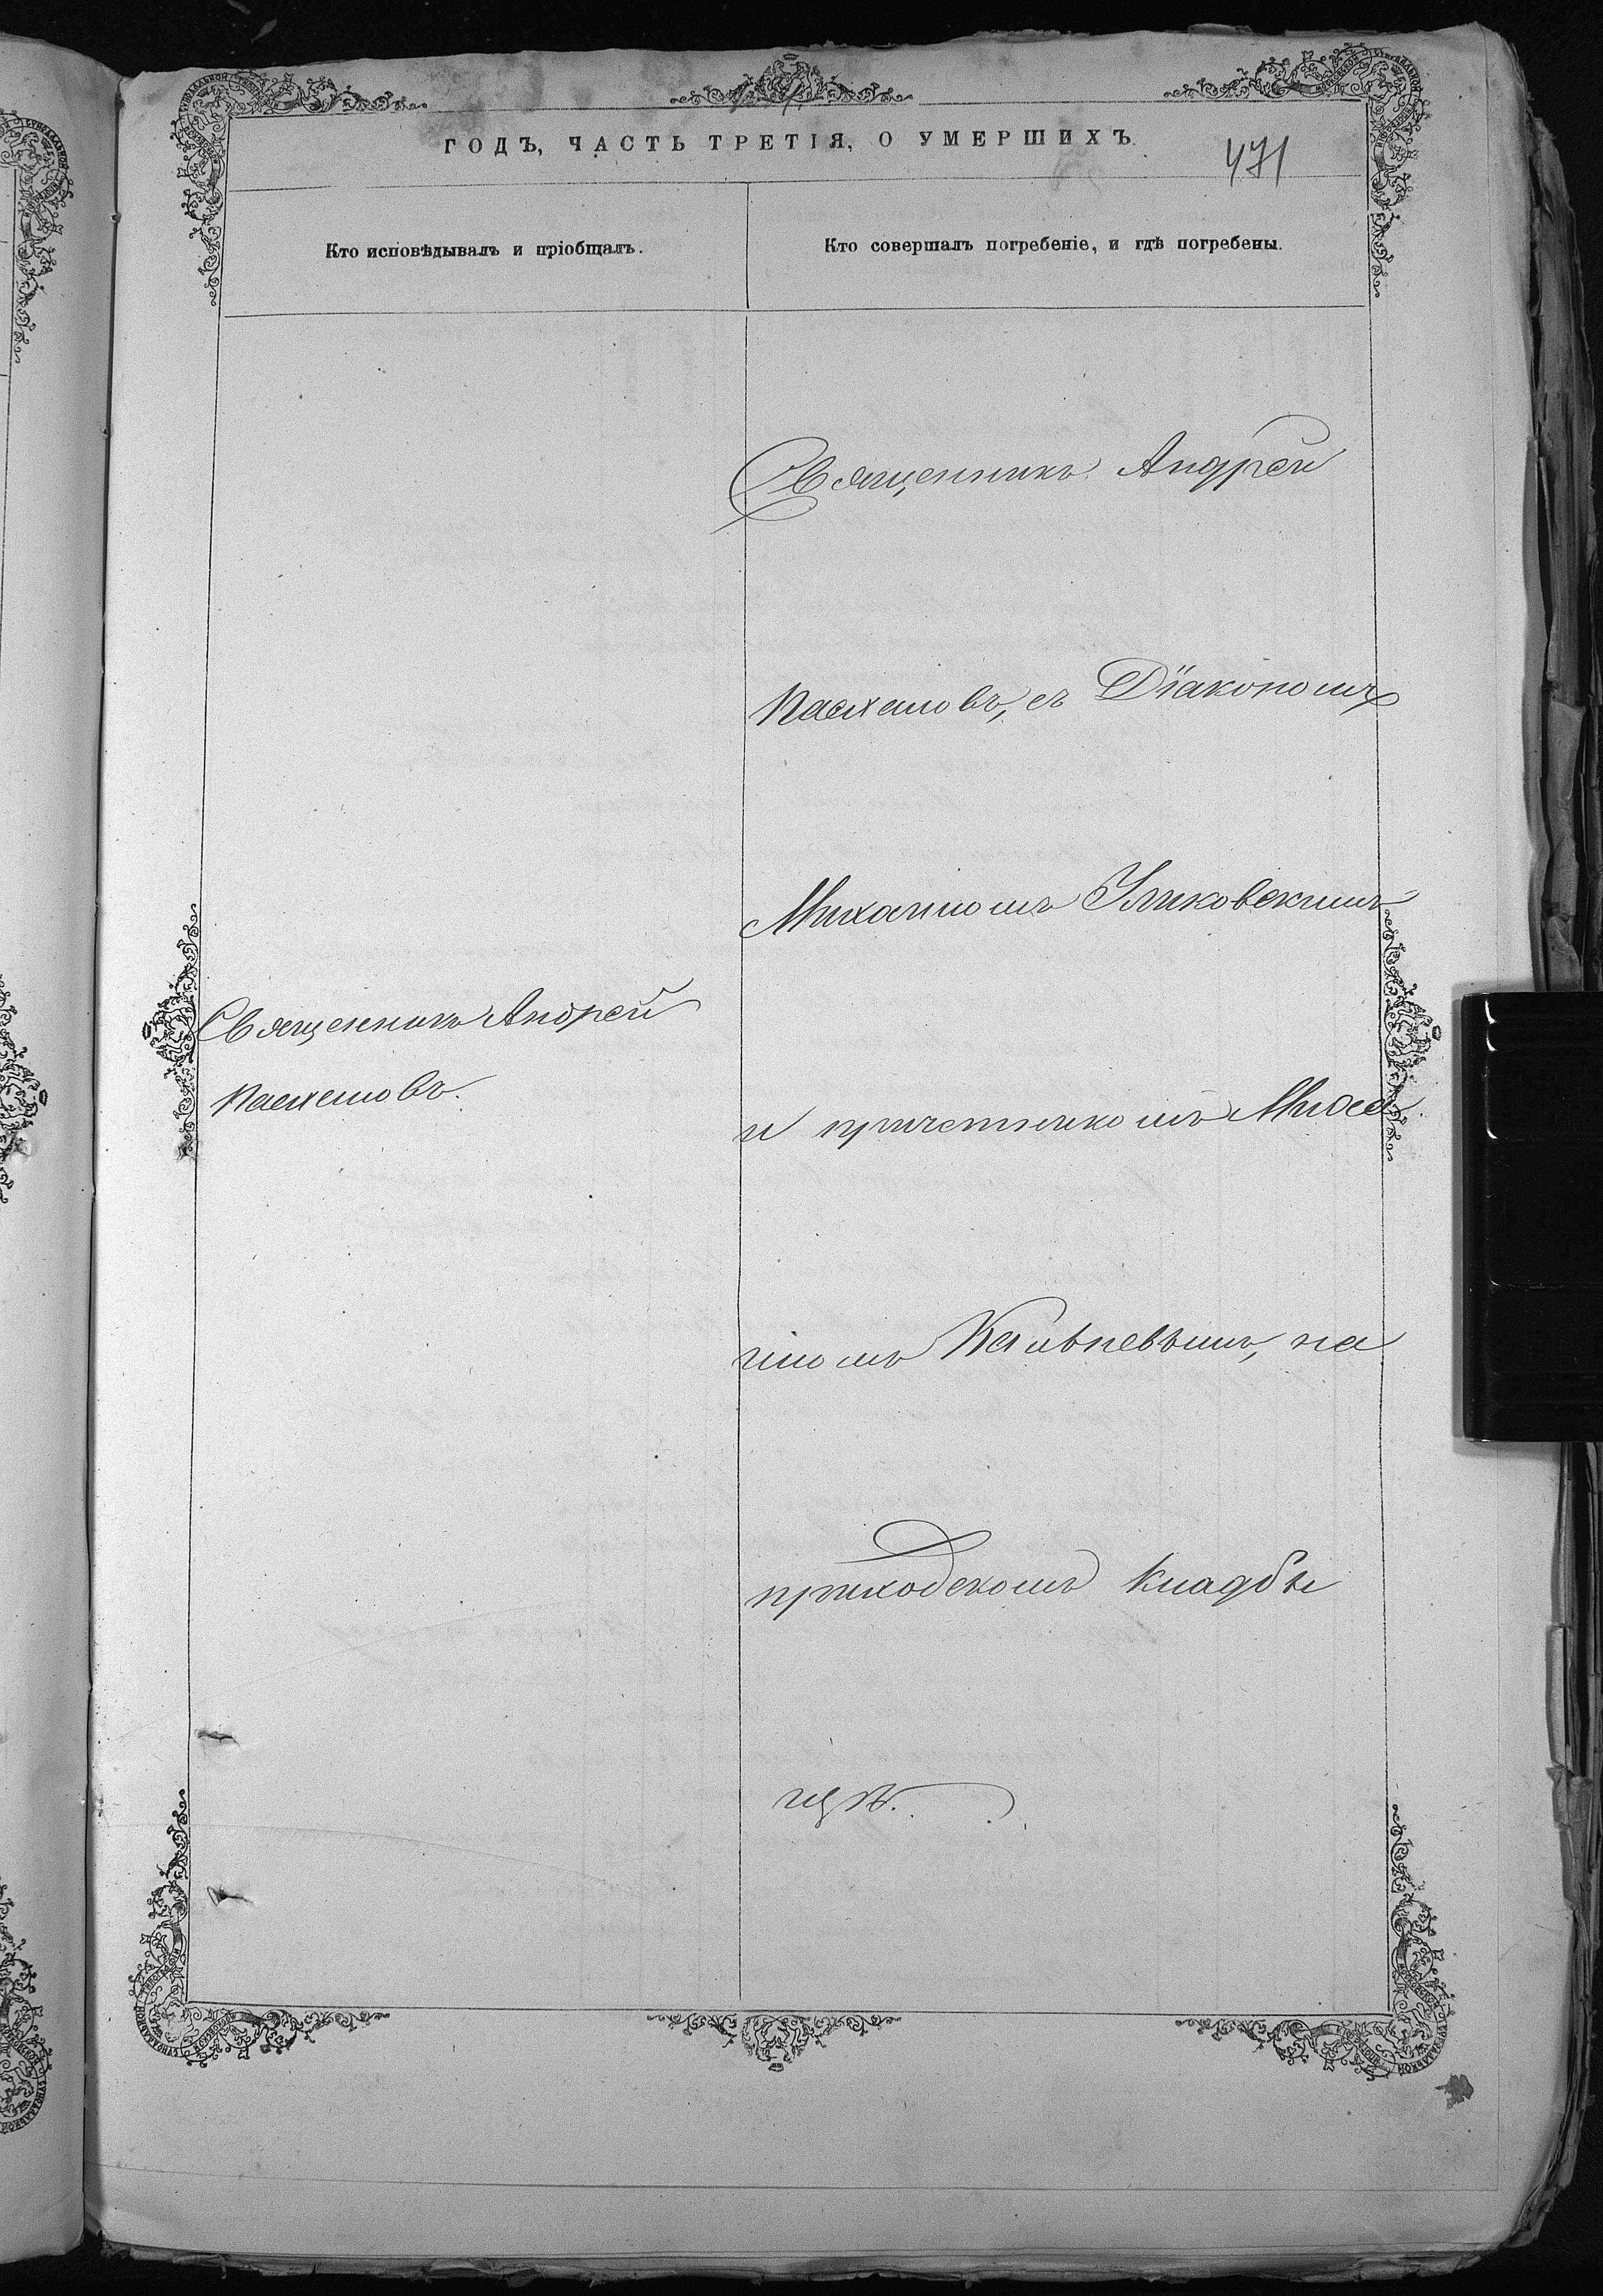 ГОДЪ, ЧАСТЬ ТРЕТІЯ, О УМЕРШИХЪ.
471
Кто исповѣдывалъ и пріобщалъ.
Кто совершалъ погребеніе, и гдѣ погребены.
Священникъ Андрей
Пасхаловъ.
Священникъ Андрей
Пасхаловъ, съ Діакономъ
Михаиломъ
и причетникомъ Миха
иломъ на
приходскомъ кладби
щѣ.